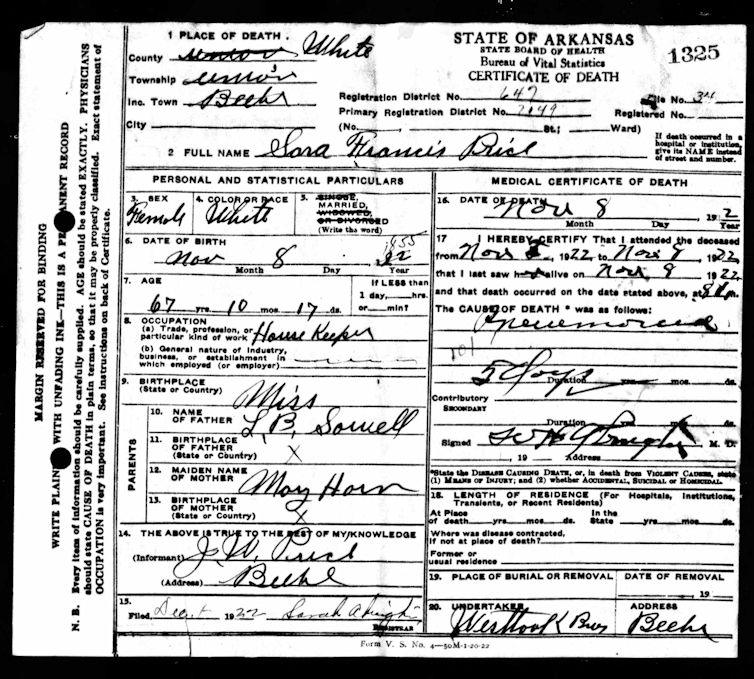 1 PLACE OF DEATH.
County White
Township union
Inc. Town Beebe
City
STATE OF ARKANSAS
STATE BOARD OF HEALTH
Bureau of Vital Statistics
CERTIFICATE OF DEATH
1325
Registration District No. 647
File No.
Primary Registration District No.
Registered No.
(No. St.; Ward)
If death occurred in a hospital or institution, give its NAME instead of street and number.
2 FULL NAME Sara Francis Price
PERSONAL AND STATISTICAL PARTICULARS
3. SEX
Female
4. COLOR OR RACE
White
5. SINGLE, MARRIED, WIDOWED, OR DIVORCED
(Write the word)
6. DATE OF BIRTH
Nov 8
Month Day Year
7. AGE
67 yrs. 10 mos. 17 ds.
If LESS than
1 day, hrs.
or min?
8. OCCUPATION
(a) Trade, profession, or
particular kind of work House Keeper
(b) General nature of industry,
business, or establishment in
which employed (or employer)
9. BIRTHPLACE
(State or Country)
Miss
PARENTS
10. NAME
OF FATHER
L. B. Sowell
11. BIRTHPLACE
OF FATHER
(State or Country) X
12. MAIDEN NAME
OF MOTHER
May Horn
13. BIRTHPLACE
OF MOTHER
(State or Country) X
14. THE ABOVE IS TRUE TO THE BEST OF MY KNOWLEDGE
(Informant) J. W. Price
(Address) Beebe
15.
Filed, Dec 1 1922 Sarah
REGISTRAR
MEDICAL CERTIFICATE OF DEATH
16. DATE OF DEATH
Nov 8 192 2
Month Day Year
17 I HEREBY CERTIFY That I attended the deceased
from Nov 1922 to Nov 8 1922
that I last saw alive on Nov 8 1922
and that death occurred on the date stated above, at 8 m.
The CAUSE OF DEATH * was as follows:
Pneumonia
101
5 Days
Duration yrs. mos. ds.
Contributory
SECONDARY
Duration yrs. mos. ds.
Signed M. D.
, 19 Address
*State the DISEASE CAUSING DEATH, or, in death from VIOLENT CAUSES, state
(1) MEANS OF INJURY; and (2) whether ACCIDENTAL, SUICIDAL OR HOMICIDAL.
18. LENGTH OF RESIDENCE (For Hospitals, Institutions,
Transients, or Recent Residents)
At Place In the
of death yrs. mos. ds. State yrs. mos. ds.
Where was disease contracted,
if not at place of death?
Former or
usual residence
19. PLACE OF BURIAL OR REMOVAL DATE OF REMOVAL
, 19
20. UNDERTAKER ADDRESS
Westbrook Bros Beebe
Form V. S. No. 4—50M-1-20-22
MARGIN RESERVED FOR BINDING
WRITE PLAIN WITH UNFADING INK—THIS IS A PERMANENT RECORD
N. B. Every item of information should be carefully supplied. AGE should be stated EXACTLY. PHYSICIANS
should state CAUSE OF DEATH in plain terms, so that it may be properly classified. Exact statement of
OCCUPATION is very important. See instructions on back of Certificate.